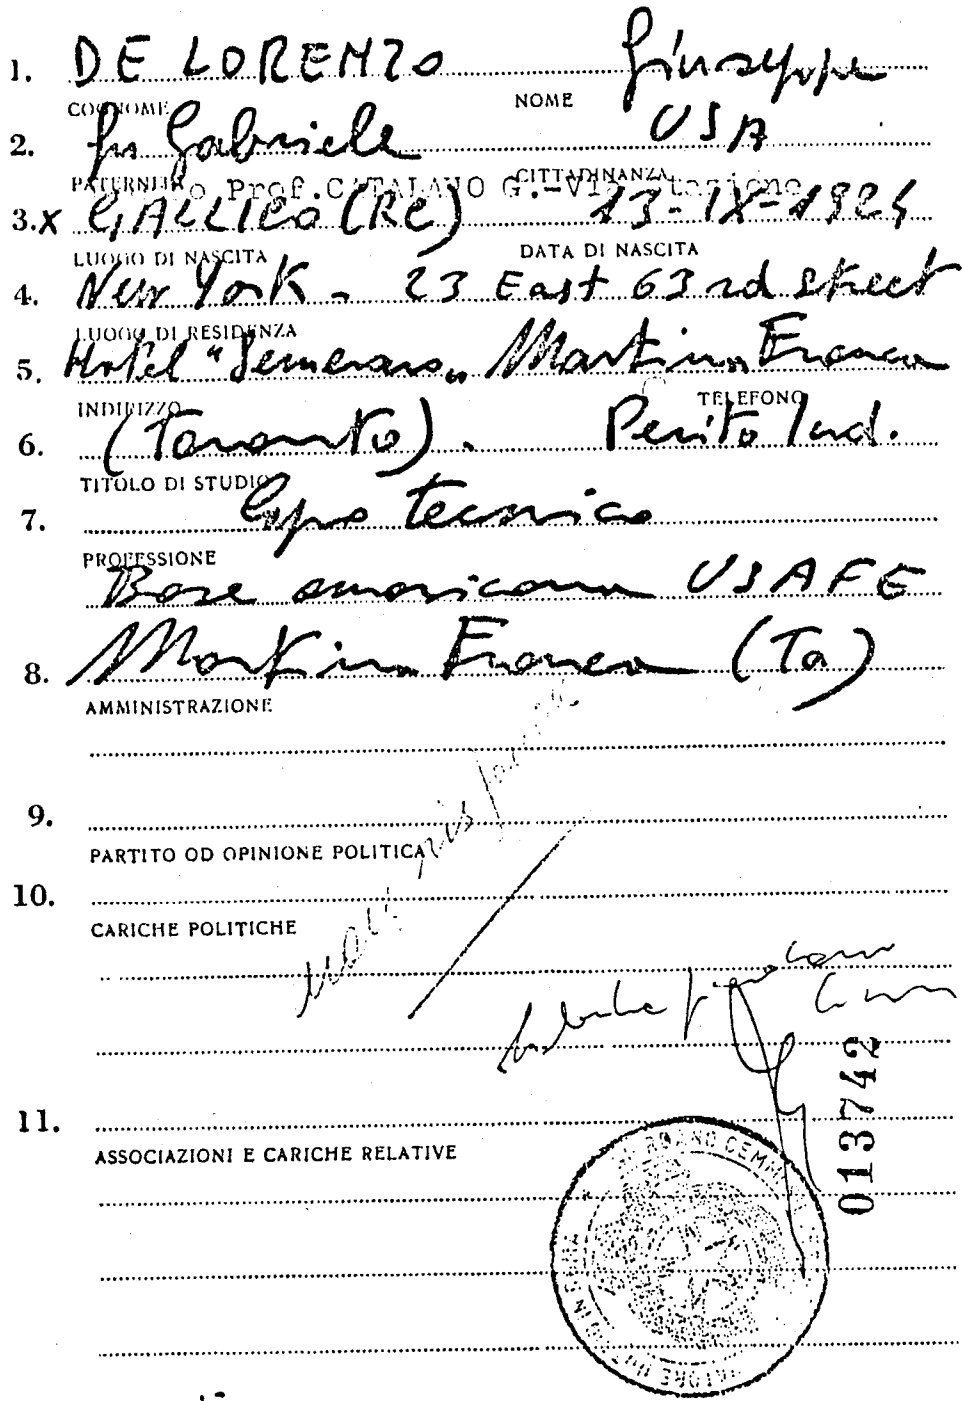 1. DE LORENZO Giuseppe
COGNOME NOME
2. fu Gabriele USA
PATERNITÀ CITTADINANZA
Prof. CATALANO G.-Via Stazione
3.x GALLICO (RC) 13-IX-1924
LUOGO DI NASCITA DATA DI NASCITA
4. New York - 23 East 63rd street
LUOGO DI RESIDENZA
5. Hotel "Semeraro" Martina Franca
INDIRIZZO TELEFONO
6. (Taranto). Perito Ind.
TITOLO DI STUDIO
7. Capo tecnico
PROFESSIONE
Base americana USAFE
8. Martina Franca (Ta)
AMMINISTRAZIONE
9.
PARTITO OD OPINIONE POLITICA
10.
CARICHE POLITICHE
013742
11.
ASSOCIAZIONI E CARICHE RELATIVE